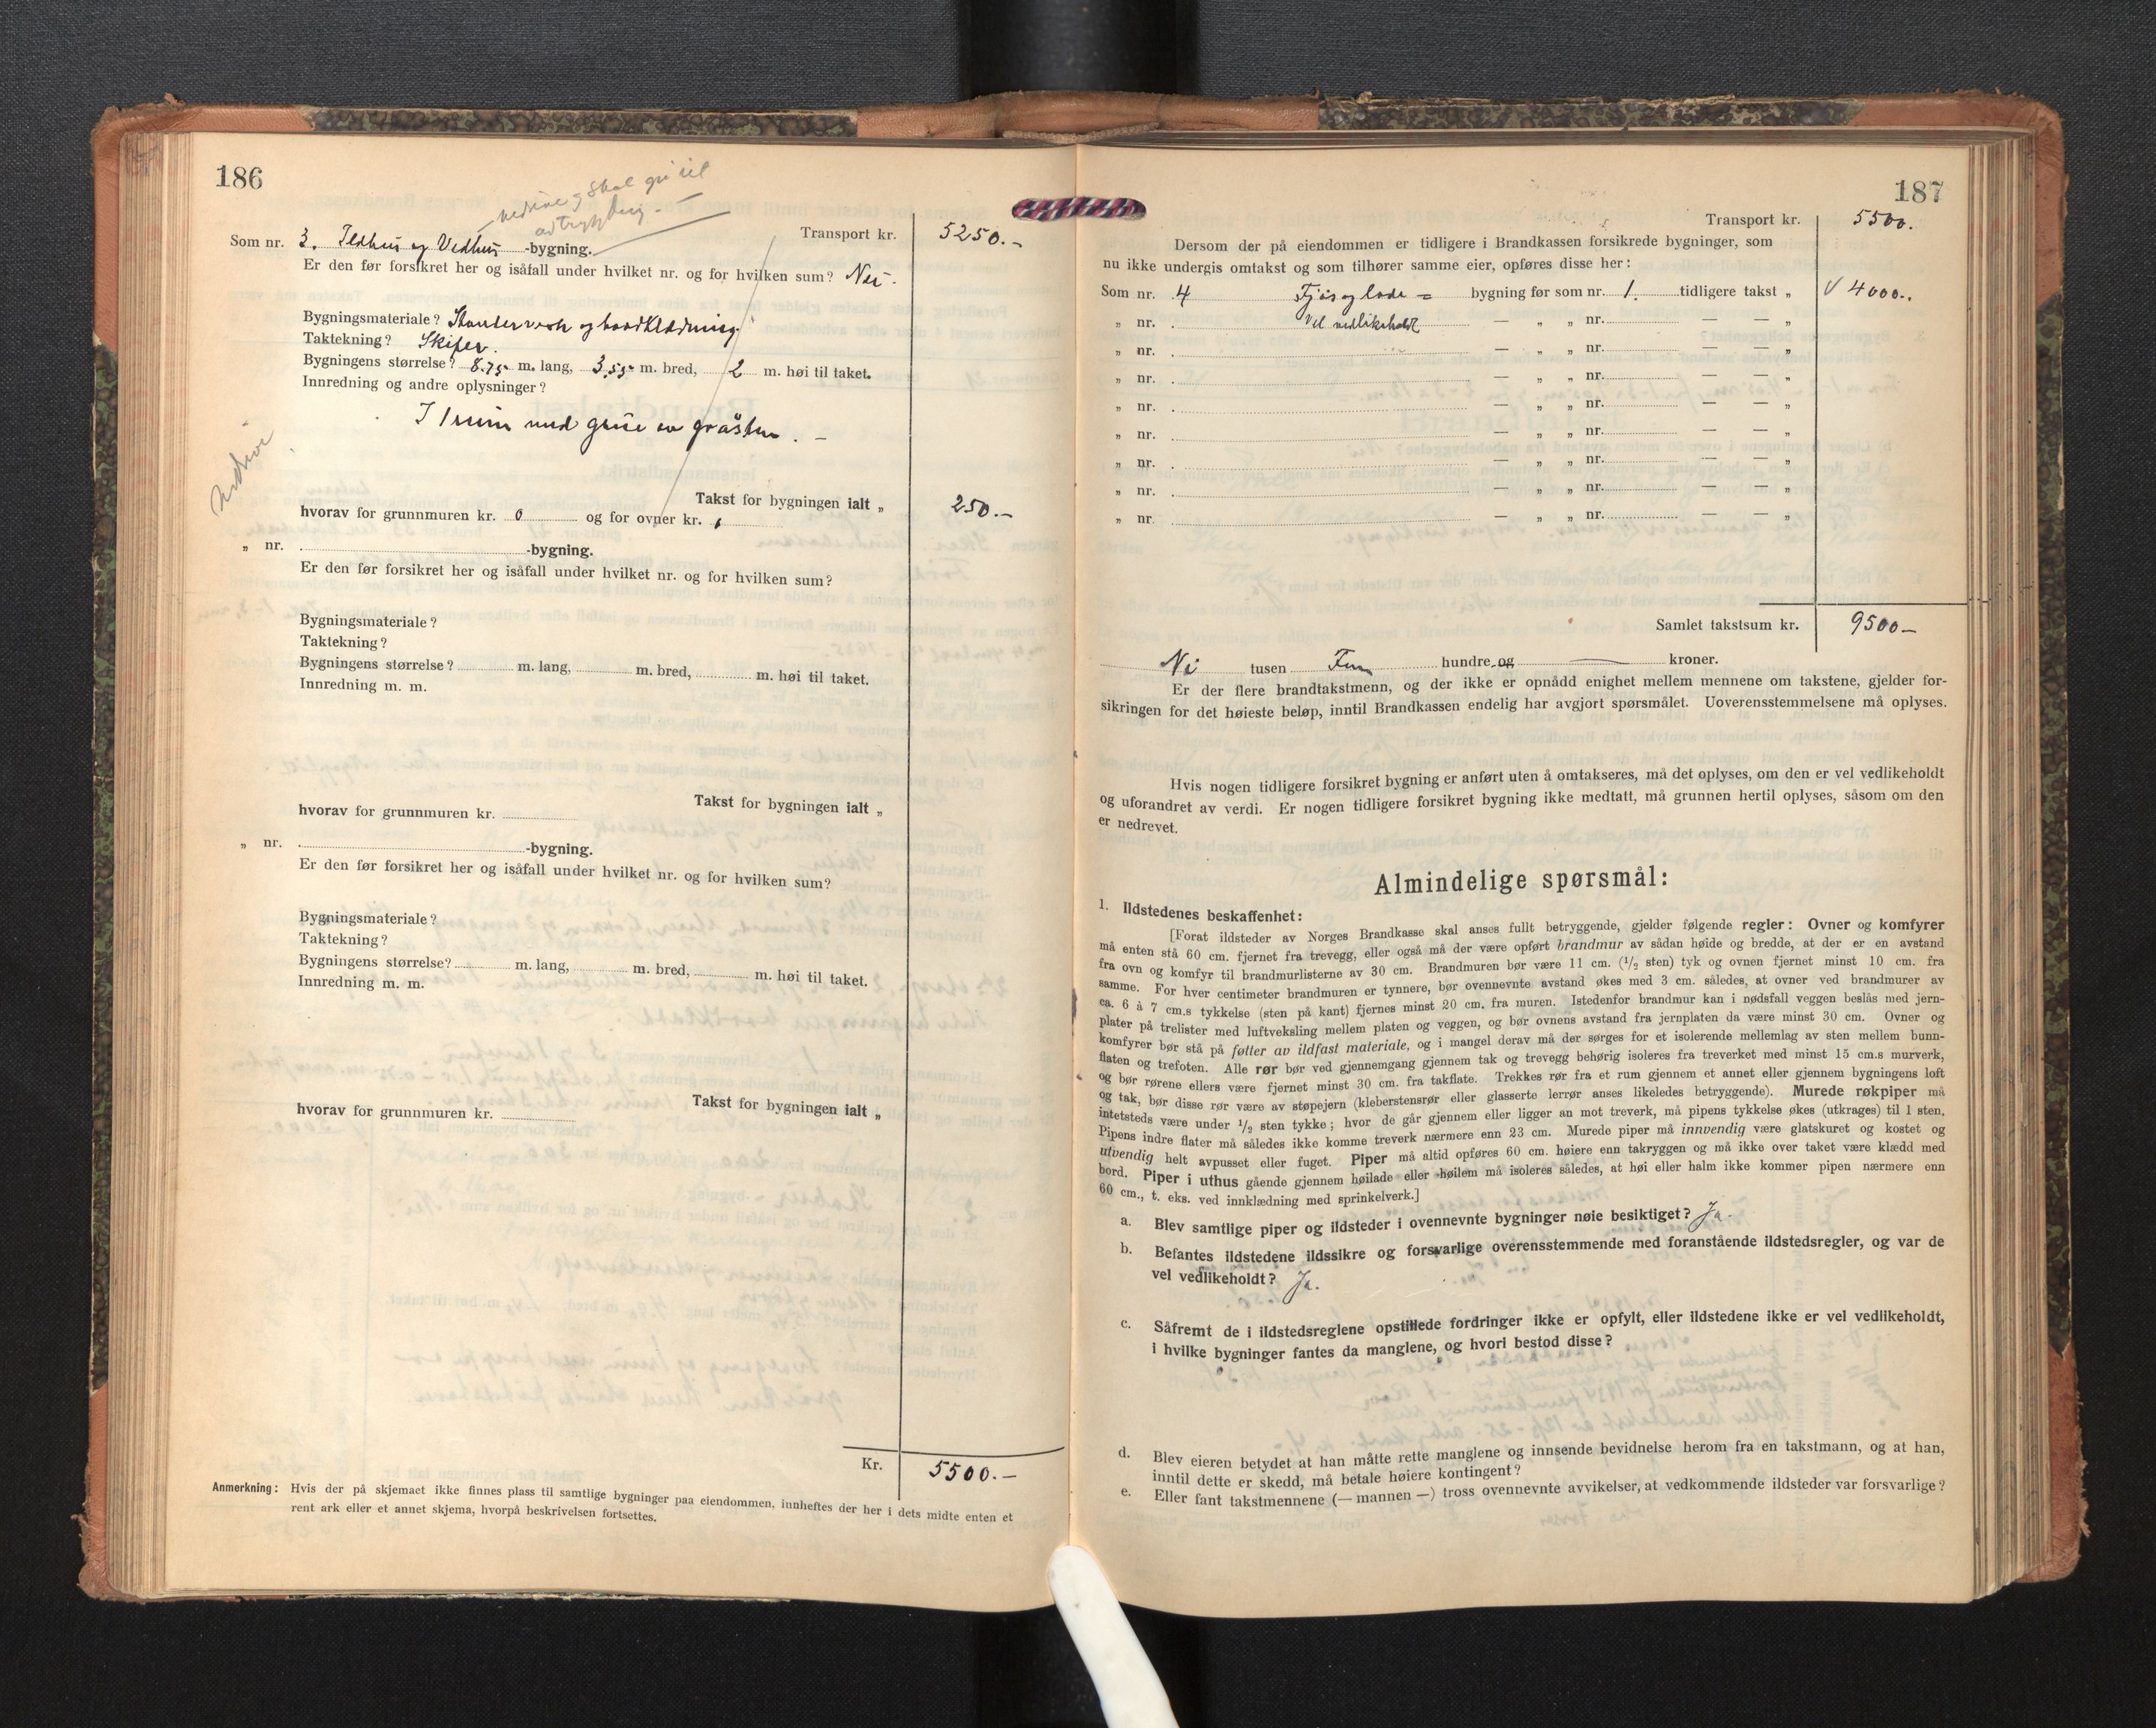 186
nedrive og skal gå til
Transport kr. 5250.–
Som nr. 3. Ildhus og Vedhus -bygning.
Er den før forsikret her og isåfall under hvilket nr. og for hvilken sum? Nei.
Bygningsmateriale? Standerverk og bordklædning
Taktekning? Skifer.
Bygningens størrelse? 8.75 m. lang, 3,55 m. bred, 2 m. høi til taket.
Innredning og andre oplysninger?
I 1 rum med grue av gråsten. –
Takst for bygningen ialt „ 250.–
hvorav for grunnmuren kr. 0 og for ovner kr.
„ nr. -bygning.
Er den før forsikret her og isåfall under hvilket nr. og for hvilken sum?
Bygningsmateriale?
Taktekning?
Bygningens størrelse? m. lang, m. bred, m. høi til taket.
Innredning m. m.
Takst for bygningen ialt „
hvorav for grunnmuren kr.
„ nr. -bygning.
Er den før forsikret her og isåfall under hvilket nr. og for hvilken sum?
Bygningsmateriale?
Taktekning?
Bygningens størrelse? m. lang, m. bred, m. høi til taket.
Innredning m. m.
Takst for bygningen ialt „
hvorav for grunnmuren kr.
Kr. 5500.–
Anmerkning: Hvis der på skjemaet ikke finnes plass til samtlige bygninger paa eiendommen, innheftes der her i dets midte enten et
rent ark eller et annet skjema, hvorpå beskrivelsen fortsettes.
187
Transport kr. 5500.
Dersom der på eiendommen er tidligere i Brandkassen forsikrede bygninger, som
nu ikke undergis omtakst og som tilhører samme eier, opføres disse her:
Som nr. 4 Fjøs og lade = bygning før som nr. 1. tidligere takst „ V 4000..
„ nr. Vel vedlikeholdt — „ „ nr. — — „
„ nr. — „ „ nr. — — „
„ nr. — „ „ nr. — — „
„ nr. — „ „ nr. — — „
„ nr. — „ „ nr. — — „
„ nr. — „ „ nr. — — „
„ nr. — „ „ nr. — — „
„ nr. — „ „ nr. — — „
Samlet takstsum kr. 9500–
Ni tusen Fem hundre og — kroner.
Er der flere brandtakstmenn, og der ikke er opnådd enighet mellem mennene om takstene, gjelder for-
sikringen for det høieste beløp, inntil Brandkassen endelig har avgjort spørsmålet. Uoverensstemmelsene må oplyses.
Hvis nogen tidligere forsikret bygning er anført uten å omtakseres, må det oplyses, om den er vel vedlikeholdt
og uforandret av verdi. Er nogen tidligere forsikret bygning ikke medtatt, må grunnen hertil oplyses, såsom om den
er nedrevet.
Almindelige spørsmål:
1. Ildstedenes beskaffenhet:
[Forat ildsteder av Norges Brandkasse skal anses fullt betryggende, gjelder følgende regler: Ovner og komfyrer
må enten stå 60 cm. fjernet fra trevegg, eller også må der være opført brandmur av sådan høide og bredde, at der er en avstand
fra ovn og komfyr til brandmurlisterne av 30 cm. Brandmuren bør være 11 cm. (1/2 sten) tyk og ovnen fjernet minst 10 cm. fra
samme. For hver centimeter brandmuren er tynnere, bør ovennevnte avstand økes med 3 cm. således, at ovner ved brandmurer av
ca. 6 à 7 cm.s tykkelse (sten på kant) fjernes minst 20 cm. fra muren. Istedenfor brandmur kan i nødsfall veggen beslås med jern-
plater på trelister med luftveksling mellem platen og veggen, og bør ovnens avstand fra jernplaten da være minst 30 cm. Ovner og
komfyrer bør stå på føtter av ildfast materiale, og i mangel derav må der sørges for et isolerende mellemlag av sten mellem bunn-
flaten og trefoten. Alle rør bør ved gjennemgang gjennem tak og trevegg behørig isoleres fra treverket med minst 15 cm.s murverk,
og bør rørene ellers være fjernet minst 30 cm. fra takflate. Trekkes rør fra et rum gjennem et annet eller gjennem bygningens loft
og tak, bør disse rør være av støpejern (kleberstensrør eller glasserte lerrør anses likeledes betryggende). Murede røkpiper må
intetsteds være under 1/2 sten tykke; hvor de går gjennem eller ligger an mot treverk, må pipens tykkelse økes (utkrages) til 1 sten.
Pipens indre flater må således ikke komme treverk nærmere enn 23 cm. Murede piper må innvendig være glatskuret og kostet og
utvendig helt avpusset eller fuget. Piper må altid opføres 60 cm. høiere enn takryggen og må ikke over taket være klædd med
bord. Piper i uthus gående gjennem høilade eller høilem må isoleres således, at høi eller halm ikke kommer pipen nærmere enn
60 cm., t. eks. ved innklædning med sprinkelverk.]
a. Blev samtlige piper og ildsteder i ovennevnte bygninger nøie besiktiget? Ja.
b. Befantes ildstedene ildssikre og forsvarlige overensstemmende med foranstående ildstedsregler, og var de
vel vedlikeholdt? Ja.
c. Såfremt de i ildstedsreglene opstillede fordringer ikke er opfylt, eller ildstedene ikke er vel vedlikeholdt,
i hvilke bygninger fantes da manglene, og hvori bestod disse?
d. Blev eieren betydet at han måtte rette manglene og innsende bevidnelse herom fra en takstmann, og at han,
inntil dette er skedd, må betale høiere kontingent?
e. Eller fant takstmennene (— mannen —) tross ovennevnte avvikelser, at vedkommende ildsteder var forsvarlige?